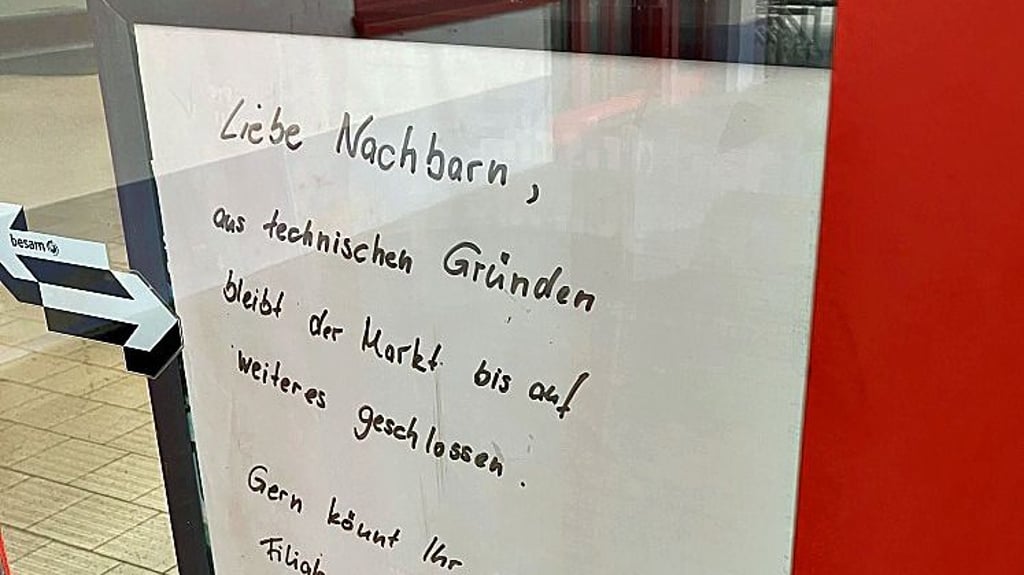 besam
Liebe Nachbarn,
aus technischen Gründen
bleibt der Markt bis auf
weiteres geschlossen.
Gern könnt Ihr